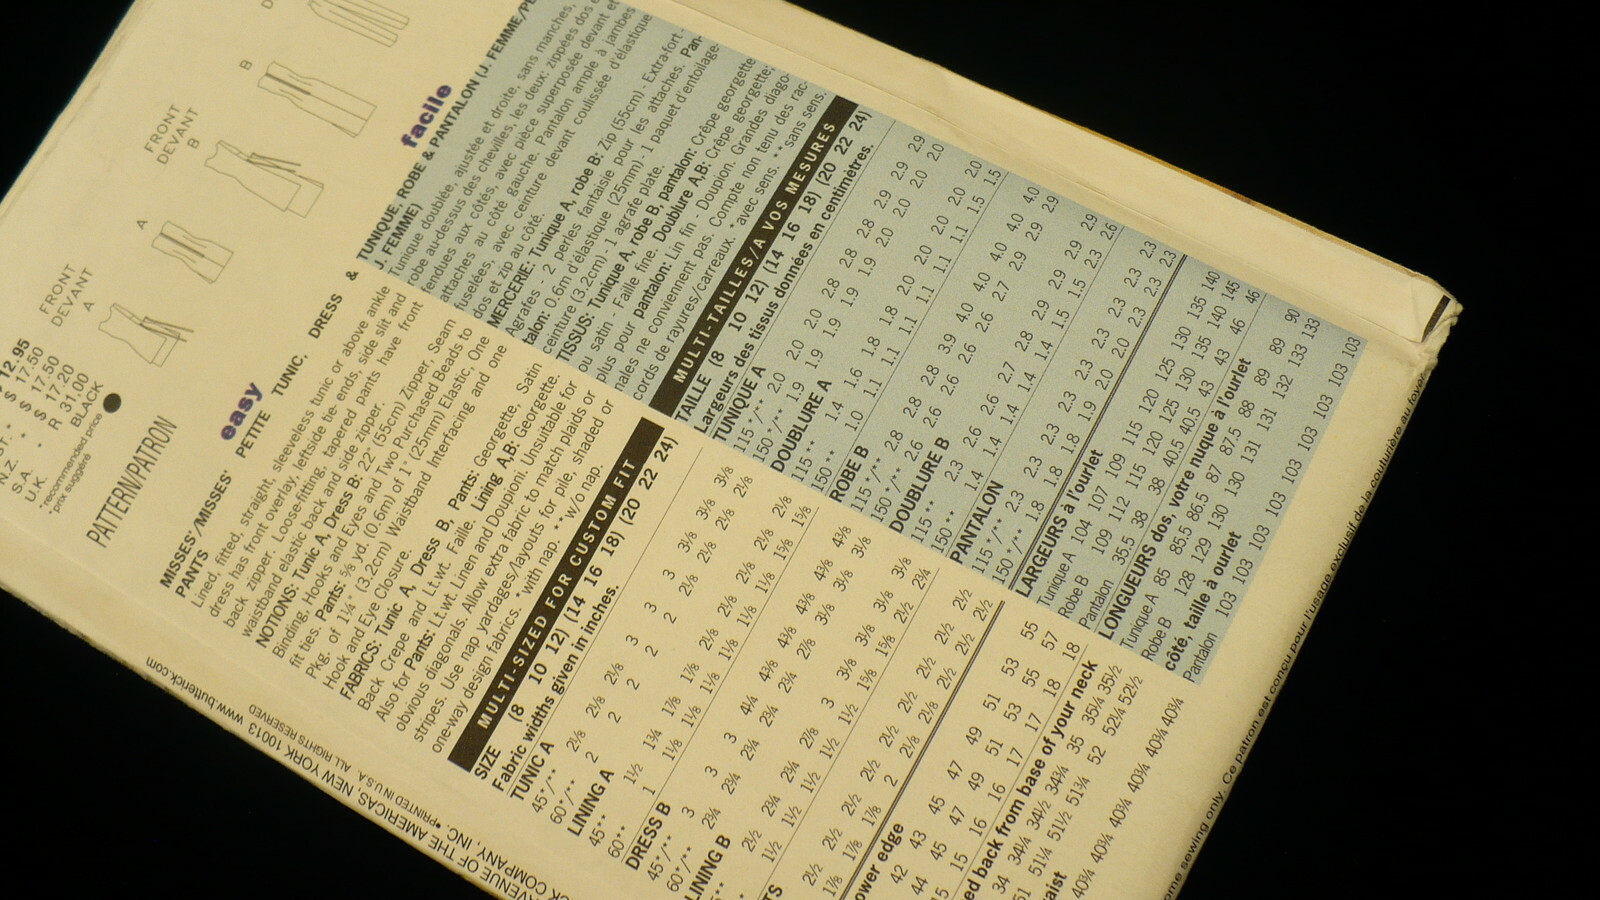 $ 12.95
$ 17.50
N.Z. $ 17.50
S.A. $ 17.20
U.K. R 31.00
BLACK
*recommended price
*prix suggéré
PATTERN/PATRON
FRONT
DEVANT
A
A
FRONT
DEVANT
B
B
easy
MISSES'/MISSES' PETITE TUNIC, DRESS &
PANTS
Lined, fitted, straight, sleeveless tunic or above ankle
dress has front overlay, leftside tie-ends, side slit and
back zipper. Loose-fitting, tapered pants have front
waistband elastic back and side zipper.
NOTIONS: Tunic A, Dress B: 22" (55cm) Zipper, Seam
Binding, Hooks and Eyes and Two Purchased Beads to
fit ties. Pants: 5/8 yd. (0.6m) of 1" (25mm) Elastic, One
Pkg. of 1¼" (3.2cm) Waistband Interfacing and one
Hook and Eye Closure.
FABRICS: Tunic A, Dress B, Pants: Georgette, Satin
Back Crepe and Lt.wt. Faille. Lining A,B: Georgette.
Also for Pants: Lt.wt. Linen and Doupioni. Unsuitable for
obvious diagonals. Allow extra fabric to match plaids or
stripes. Use nap yardages/layouts for pile, shaded or
one-way design fabrics. *with nap. **w/o nap.
MULTI-SIZED FOR CUSTOM FIT
SIZE (8 10 12) (14 16 18) (20 22 24)
Fabric widths given in inches.
TUNIC A
45"*/** 2⅛ 2⅛ 2⅛ 3 3 3 3⅛ 3⅛ 3⅛
60"*/** 2 2 2 2 2 2⅛ 2⅛ 2⅛ 2⅛
LINING A
45"** 1½ 1¾ 1⅞ 2⅛ 2⅛ 2⅛
60"** 1 1⅛ 1⅛ 1⅛ 1⅛ 1⅛ 1⅝ 1⅝
DRESS B
45"*/** 3 3 3 4¼ 4⅜ 4⅜ 4⅜ 4⅜ 4⅜
60"*/** 2¾ 2¾ 2¾ 2¾ 2⅞ 3⅛ 3⅛ 3⅛
LINING B
2½ 2¾ 2¾ 2⅞ 3 3⅛ 3⅛ 3⅛
1½ 1½ 1½ 1½ 1½ 1⅝ 2½ 2¾
TS
2½ 2½ 2½ 2½ 2½ 2½ 2½ 2½
1⅞ 1⅞ 2 2⅛ 2⅛ 2½ 2½ 2½
ower edge
42 43 45 47 49 51 53 55
44 45 47 49 51 53 55 57
15 15 16 16 17 17 18 18
ed back from base of your neck
34 34¼ 34½ 34¾ 35 35¼ 35½
51 51¼ 51½ 51¾ 52 52¼ 52½
aist
40¾ 40¾ 40¾ 40¾ 40¾ 40¾
facile
TUNIQUE, ROBE & PANTALON (J. FEMME/PE
J. FEMME)
Tunique doublée, ajustée et droite, sans manches,
robe au-dessus des chevilles, les deux: zippées dos e
fendues aux côtés, avec pièce superposée devant et
attaches au côté gauche. Pantalon ample à jambes
fuselées, avec ceinture devant coulissée d'élastique
dos et zip au côté.
MERCERIE: Tunique A, robe B: Zip (55cm) - Extra-fort -
Agrafes - 2 perles fantaisie pour les attaches. Pan-
talon: 0.6m d'élastique (25mm) - 1 paquet d'entoilage-
ceinture (3.2cm) - 1 agrafe plate.
TISSUS: Tunique A, robe B, pantalon: Crêpe georgette
ou satin - Faille fine. Doublure A,B: Crêpe georgette;
plus pour pantalon: Lin fin - Doupion. Grandes diago-
nales ne conviennent pas. Compte non tenu des rac-
cords de rayures/carreaux. *avec sens. **sans sens.
MULTI-TAILLES/A VOS MESURES
TAILLE (8 10 12) (14 16 18) (20 22 24)
Largeurs des tissus données en centimètres.
TUNIQUE A
115*/** 2.0 2.0 2.0 2.8 2.8 2.8 2.9 2.9 2.9
150*/** 1.9 1.9 1.9 1.9 1.9 2.0 2.0 2.0 2.0
DOUBLURE A
115** 1.4 1.6 1.8 1.8 2.0 2.0 2.0 2.0 2.0
150** 1.0 1.1 1.1 1.1 1.1 1.1 1.1 1.5 1.5
ROBE B
115*/** 2.8 2.8 2.8 3.9 4.0 4.0 4.0 4.0 4.0
150*/** 2.6 2.6 2.6 2.6 2.6 2.7 2.9 2.9 2.9
DOUBLURE B
115** 2.3 2.6 2.6 2.7 2.8 2.9 2.9 2.9 2.9
150** 1.4 1.4 1.4 1.4 1.4 1.4 1.5 2.3 2.6
PANTALON
115*/** 2.3 2.3 2.3 2.3 2.3 2.3 2.3 2.3 2.3
150*/** 1.8 1.8 1.8 1.9 2.0 2.0 2.3 2.3 2.3
LARGEURS à l'ourlet
Tunique A 104 107 109 115 120 125 130 135 140
Robe B 109 112 115 120 125 130 135 140 145
Pantalon 35.5 38 38 40.5 40.5 43 43 46 46
LONGUEURS dos, votre nuque à l'ourlet
Tunique A 85 85.5 86.5 87 87.5 88 89 89 90
Robe B 128 129 130 130 131 131 132 133 133
côté, taille à ourlet
Pantalon 103 103 103 103 103 103 103 103 103
AVENUE OF THE AMERICAS, NEW YORK 10013 www.butterick.com
CK COMPANY, INC. •PRINTED IN U.S.A. ALL RIGHTS RESERVED
ome sewing only. Ce patron est conçu pour l'usage exclusif de la couturière au foyer.